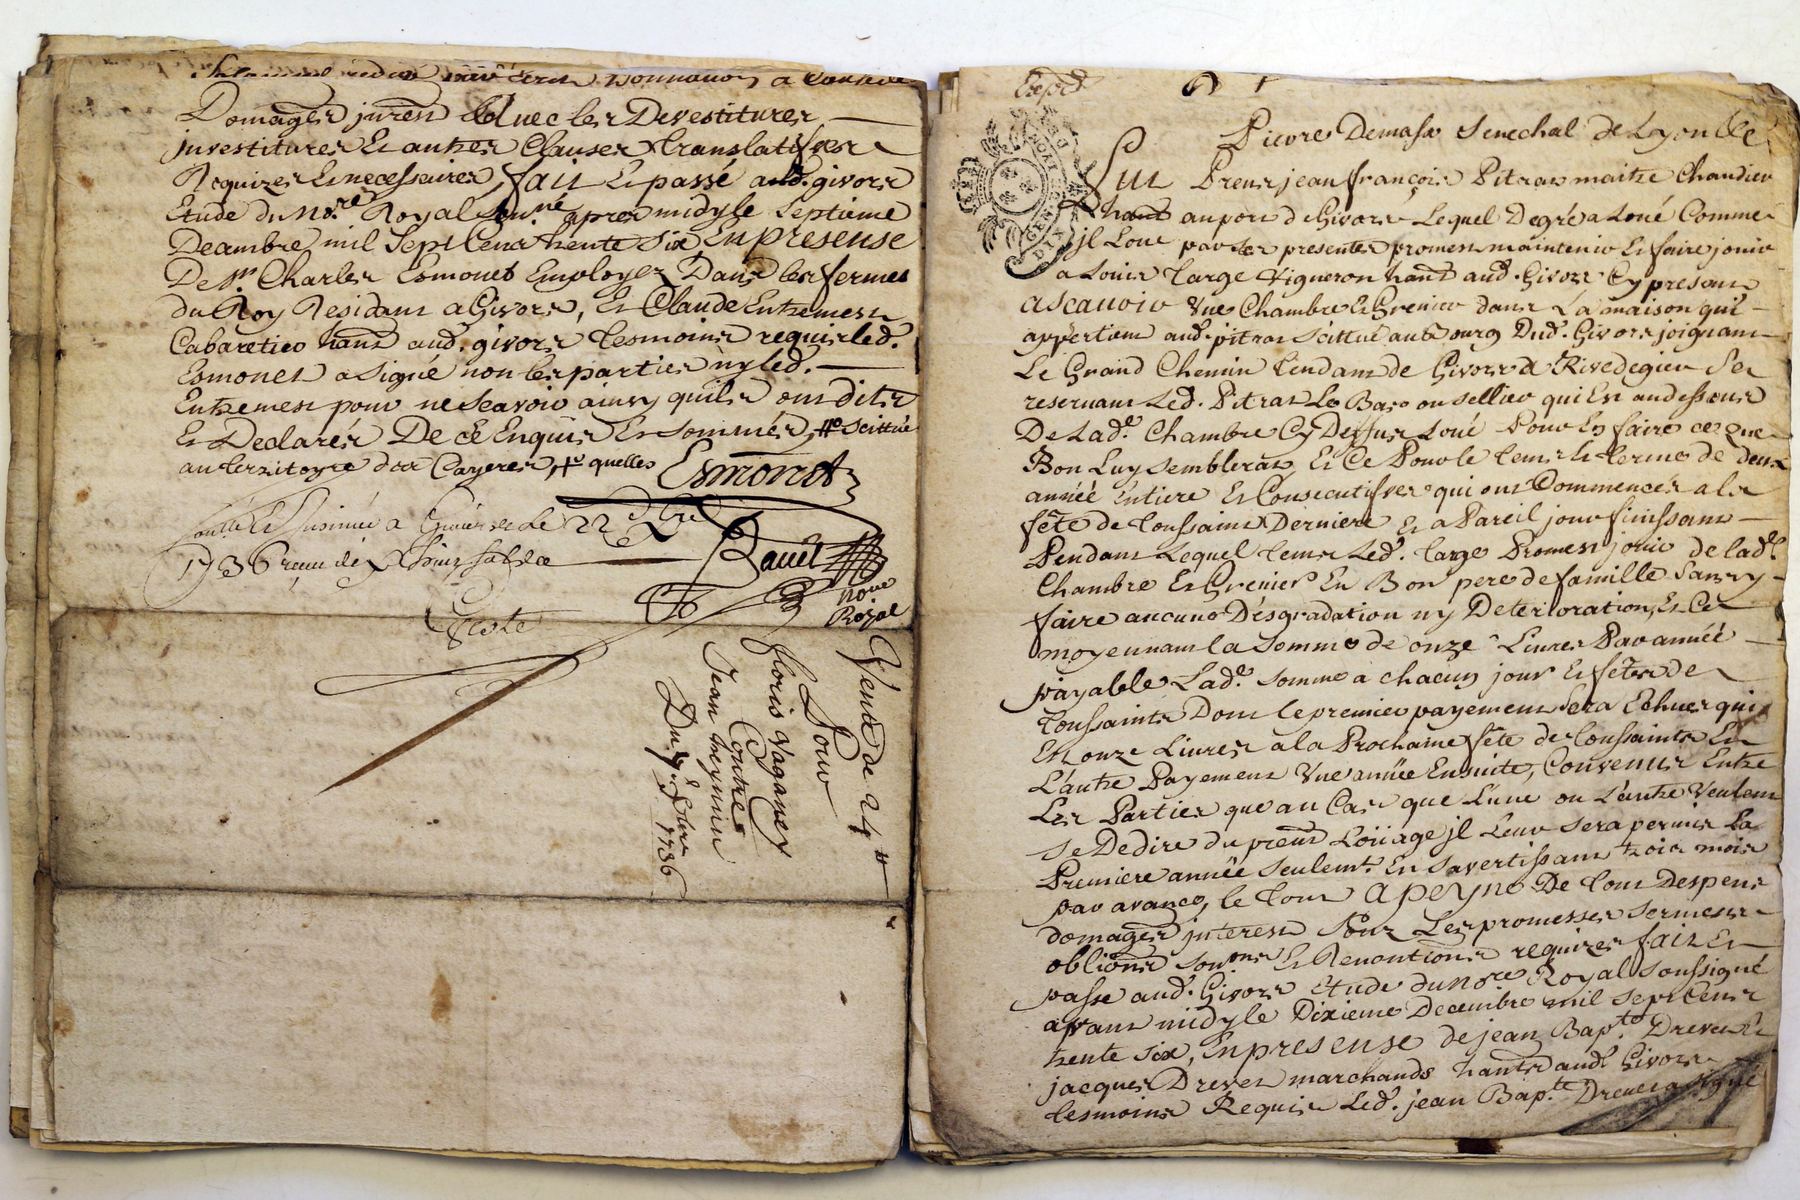 Domages interest Avec les Devestitures
jnvestitures Et autres Clauses translatifves
Requizes Et necessaires, fait Et passé aud. givors
Etude du No.re Royal sou.né apres midy le septieme
Decembre mil Sept Cens trente Six En presense
De s.r Charles Esmonet Employez Dans les fermes
du Roy Residant a Givors, Et Claude Entremest
Cabaretier hant aud. givors tesmoins requis led.
Esmonet a signé non les parties ny led.
Entremest pour ne scavoir ainsy quils ont dits
Et Declarés De ce Enquis Et sommés, scittué
au territoyre des Cayeres, quelles
Esmonet
Insinué a le 22 Xbre
1736 receu sols
Bauel
No.re
Royal
Vente de 24 #
Pour
floris Vaganey
Contre
Jean
Du 7e Xbre
1736
Exp.é
Pierre Demasso Senechal de Lyon
DIX DEN GEN DE LYON
Fut Preus jean françois Pitrat maitre Chandier
hant au port de Givors Lequel De gré a Loué Comme
jl Loue par ses presentes promest maintenir Et faire jouir
a Louis Large Vigneron hant aud. Givors Cy presant
ascauoir Vne Chambre Et Grenier dans La maison qui
appertient aud. pitrat scittué au Bourg Dud. Givors joignant
Le Grand Chemin tendant de Givors a Rivedegier Se
reservant Led. Pitrat Le Bas ou sellier qui Est au dessous
De Lad.e Chambre Cy Dessus Loué Pour En faire ce que
Bon Luy semblerat, Et Ce Pour le tems Et terme de deux
année Entiere Et Consecutifves qui ont Commencés a la
fête de toussaint Derniere Et a Pareil jour finissant
Pendant Lequel tems Led. Large Promest jouir de lad.e
Chambre Et Grenier En Bon pere de famille Sans y
faire aucune Desgradation ny Deterioration, Et Ce
moyennant la somme de onze Livres Par année
payable Lad.e somme a chacun jour Et fêtes de
toussaints Dont le premier payement sera Echue qui
Est onze Livres a la Prochaine fête de toussaints Et
L'autre Payement Vne année Ensuite, Convenus Entre
Les Parties que au Cas que L'une ou L'autre Veulent
se Dedire du present Loüage jl Leur sera permis La
Premiere année seulem.t En s'avertissant trois mois
par avance, le tout A peyne De tous Despens
domages jnterest Pour Les promesses serment
obliõns sou.ons Et Renontions requizes fait Et
passe aud. Givors Etude du No.re Royal soussigné
avant midy le Dixieme Decembre mil sept Cens
trente six, En presense de jean Bap.te Drevet Et
jacques Drevet marchands hants aud. Givors
tesmoins Requis Led. jean Bap.te Drevet a signé